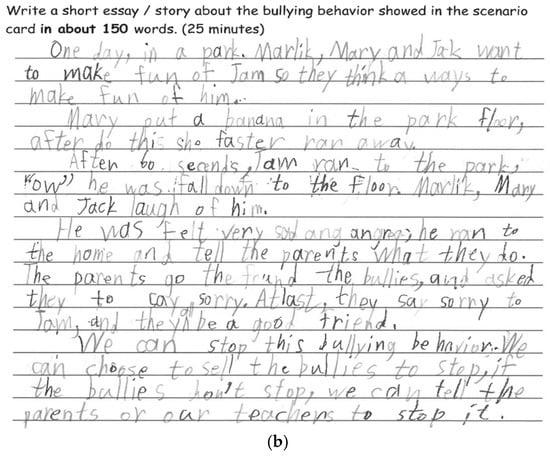 Write a short essay / story about the bullying behavior showed in the scenario
card in about 150 words. (25 minutes)
One day, in a park. Marlik, Mary and Jak want
to make fun of Jam so they think a ways to
make fun of him..
Mary put a banana in the park floor,
after do this she faster ran away.
After 60 secends, Jam ran to the park,
"ow" he was fall down to the floor. Marlik, Mary
and Jack laugh of him.
He was felt very sad and angry; he ran to
the home and tell the parents what they do.
The parents go the frund the bullies, and asked
they to say sorry. At last, they say sorry to
Jam, and they'll be a good friend.
We can stop this bullying behavior. We
can choose to sell the bullies to stop, if
the bullies don't stop, we can tell the
parents or our teachers to stop it.
(b)